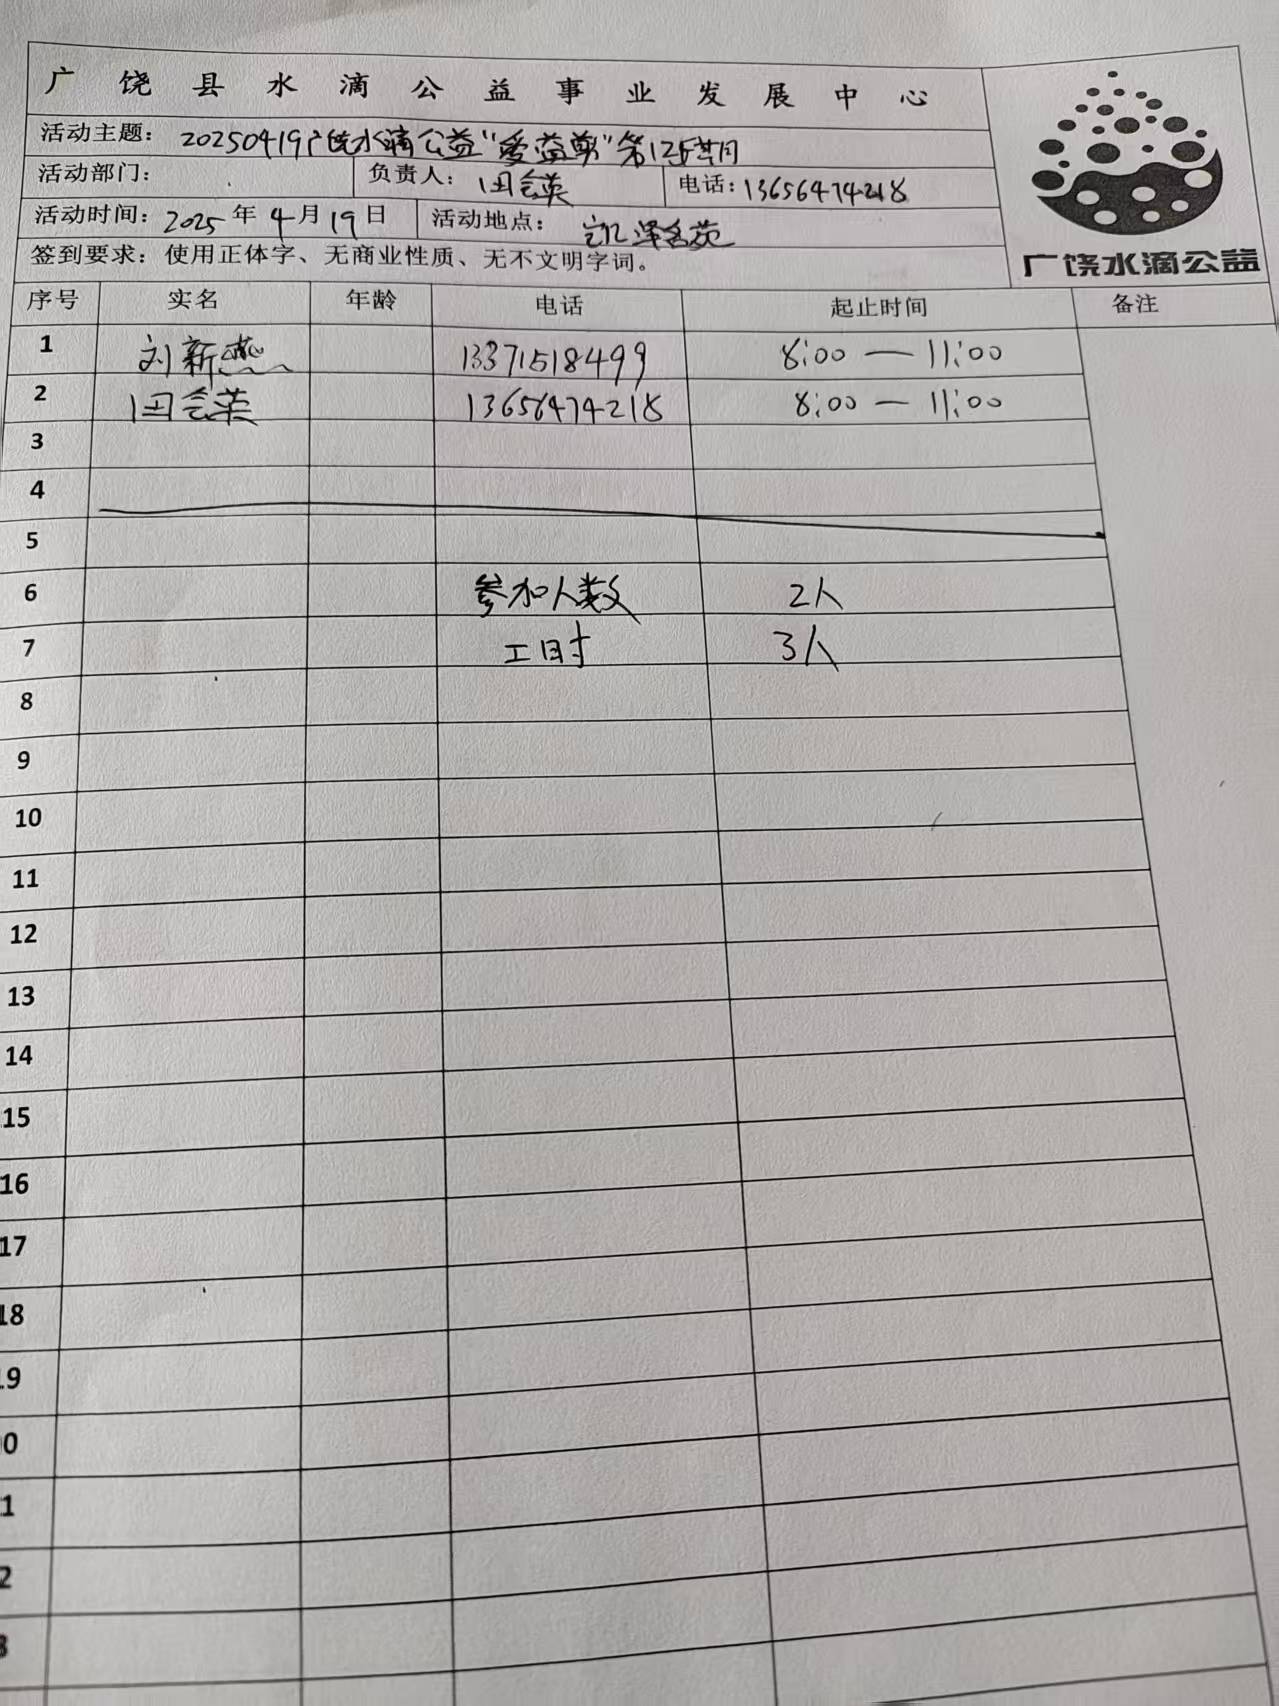 广饶县水滴公益事业发展中心
活动主题：20250419广饶水滴公益“爱益剪”第125期
活动部门： 负责人：田会英 电话：13656474218
活动时间：2025年4月19日 活动地点：凯泽名苑
签到要求：使用正体字、无商业性质、无不文明字词。
广饶水滴公益
序号 实名 年龄 电话 起止时间 备注
1 刘新燕 13371518499 8:00—11:00
2 田会英 13656474218 8:00—11:00
3
4
5
6 参加人数 2人
7 工时 3人
8
9
10
11
12
13
14
15
16
17
18
19
0
1
2
3